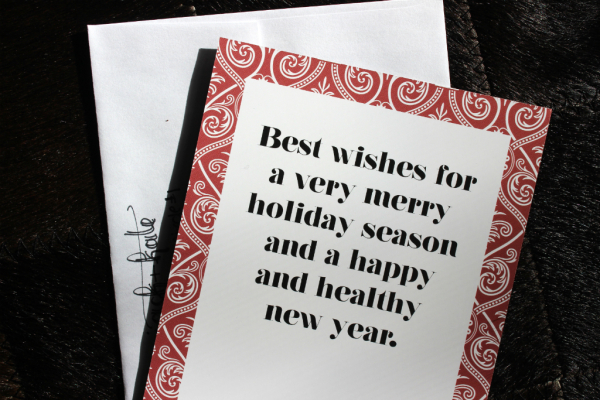 Best wishes for
a very merry
holiday season
and a happy
and healthy
new year.